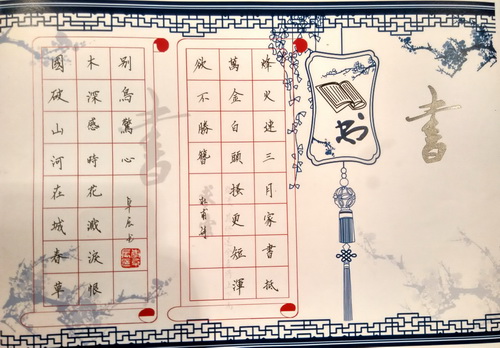 國破山河在城春草
木深感時花濺淚恨
別鳥驚心
烽火連三月家書抵
萬金白頭搔更短渾
欲不勝簪
杜甫詩
书
書
書